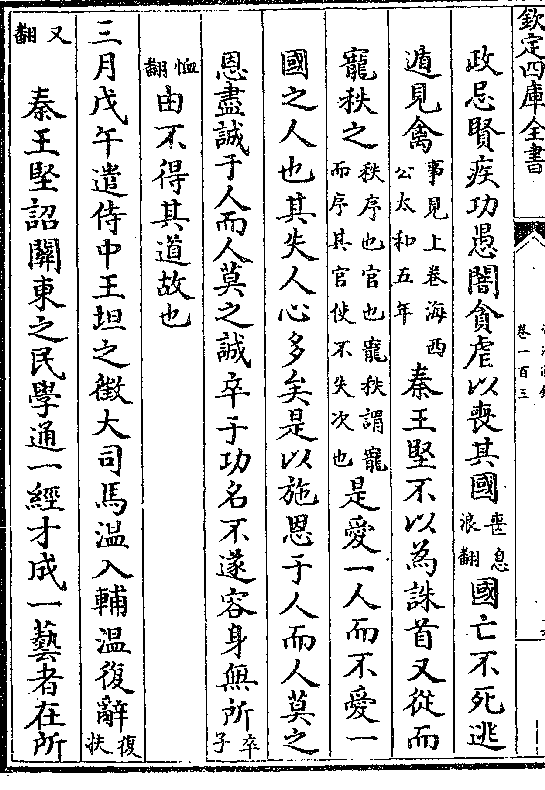 欽定四庫全書
卷一百三
政忌賢疾功愚闇貪虐以喪其國喪息浪翻國亡不死逃
遁見禽事見上卷海西公太和五年秦王堅不以為誅首又從而
寵秩之秩序也官也寵秩謂寵而序其官使不失次也是愛一人而不愛一
國之人也其失人心多矣是以施恩于人而人莫之
恩盡誠于人而人莫之誠卒于功名不遂容身無所卒子
恤翻由不得其道故也
三月戊午遣侍中王坦之徵大司馬温入輔温復辭復扶
又翻秦王堅詔關東之民學通一經才成一藝者在所